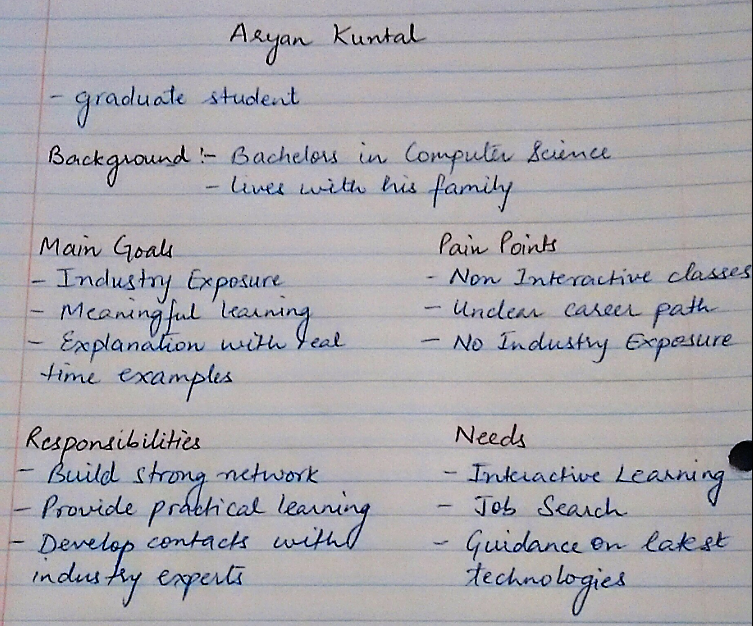 Aryan Kuntal
- graduate student
Background :- Bachelors in Computer Science
- lives with his family
Main Goals
- Industry Exposure
- Meaningful learning
- Explanation with real
time examples
Pain Points
- Non Interactive classes
- Unclear career path
- No Industry Exposure
Responsibilities
- Build strong network
- Provide practical learning
- Develop contacts with
industry experts
Needs
- Interactive Learning
- Job Search
- Guidance on latest
technologies